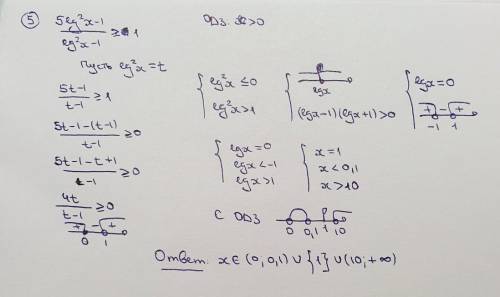 ⑤ (5lg²x-1)/(lg²x-1) ≥ 1   ОДЗ. x>0
Пусть lg²x=t
(5t-1)/(t-1) ≥ 1
(5t-1-(t-1))/(t-1) ≥ 0
(5t-1-t+1)/(t-1) ≥ 0
4t/(t-1) ≥ 0
+ - +
0 1
{ lg²x≤0
lg²x>1
{ lgx
(lgx-1)(lgx+1)>0
{ lgx=0
+ - +
-1 1
{ lgx=0
lgx<-1
lgx>1
{ x=1
x<0,1
x>10
С ОДЗ 0 0,1 1 10
Ответ: x∈(0;0,1)∪{1}∪(10;+∞)